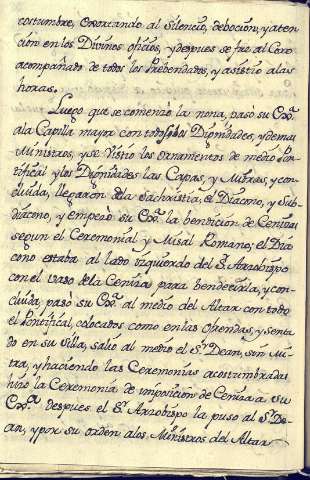 costumbre, exortando al Silencio, debocion, y aten
cion en los Divinos oficios, y despues se fue al Coro
acompañado de todos los Prebendados, y assistio alas
horas.
Luego que se comenzò la nona, pasò su Exª
ala Capilla mayor con todos los Dignidades, y demas
Ministros, y se vistio los ornamentos de medio Pon
tifical y los Dignidades las Capas, y Mitras, y con
cluida, llegaron dela Sachristia, el Diacono, y Sub
diacono, y empezò su Exª la bendicion de Ceniza
segun el Ceremonial, y Misal Romano; el Dia
cono estaba al lado izquierdo del Sr Arzobispo
con el vaso dela Ceniza para bendecirla, y con
cluida, pasò su Exª al medio del Altar con todo
el Pontifical, colocados como en las Ofrendas, y senta
do en su silla, saliò al medio el Sr Dean, sin Mi
tra, y haciendo las Ceremonias acostumbradas
hizo la Ceremonia de imposicion de Ceniza a su
Exª despues el Sr Arzobispo la puso al Sr De
an, y por su orden alos Ministros del Altar